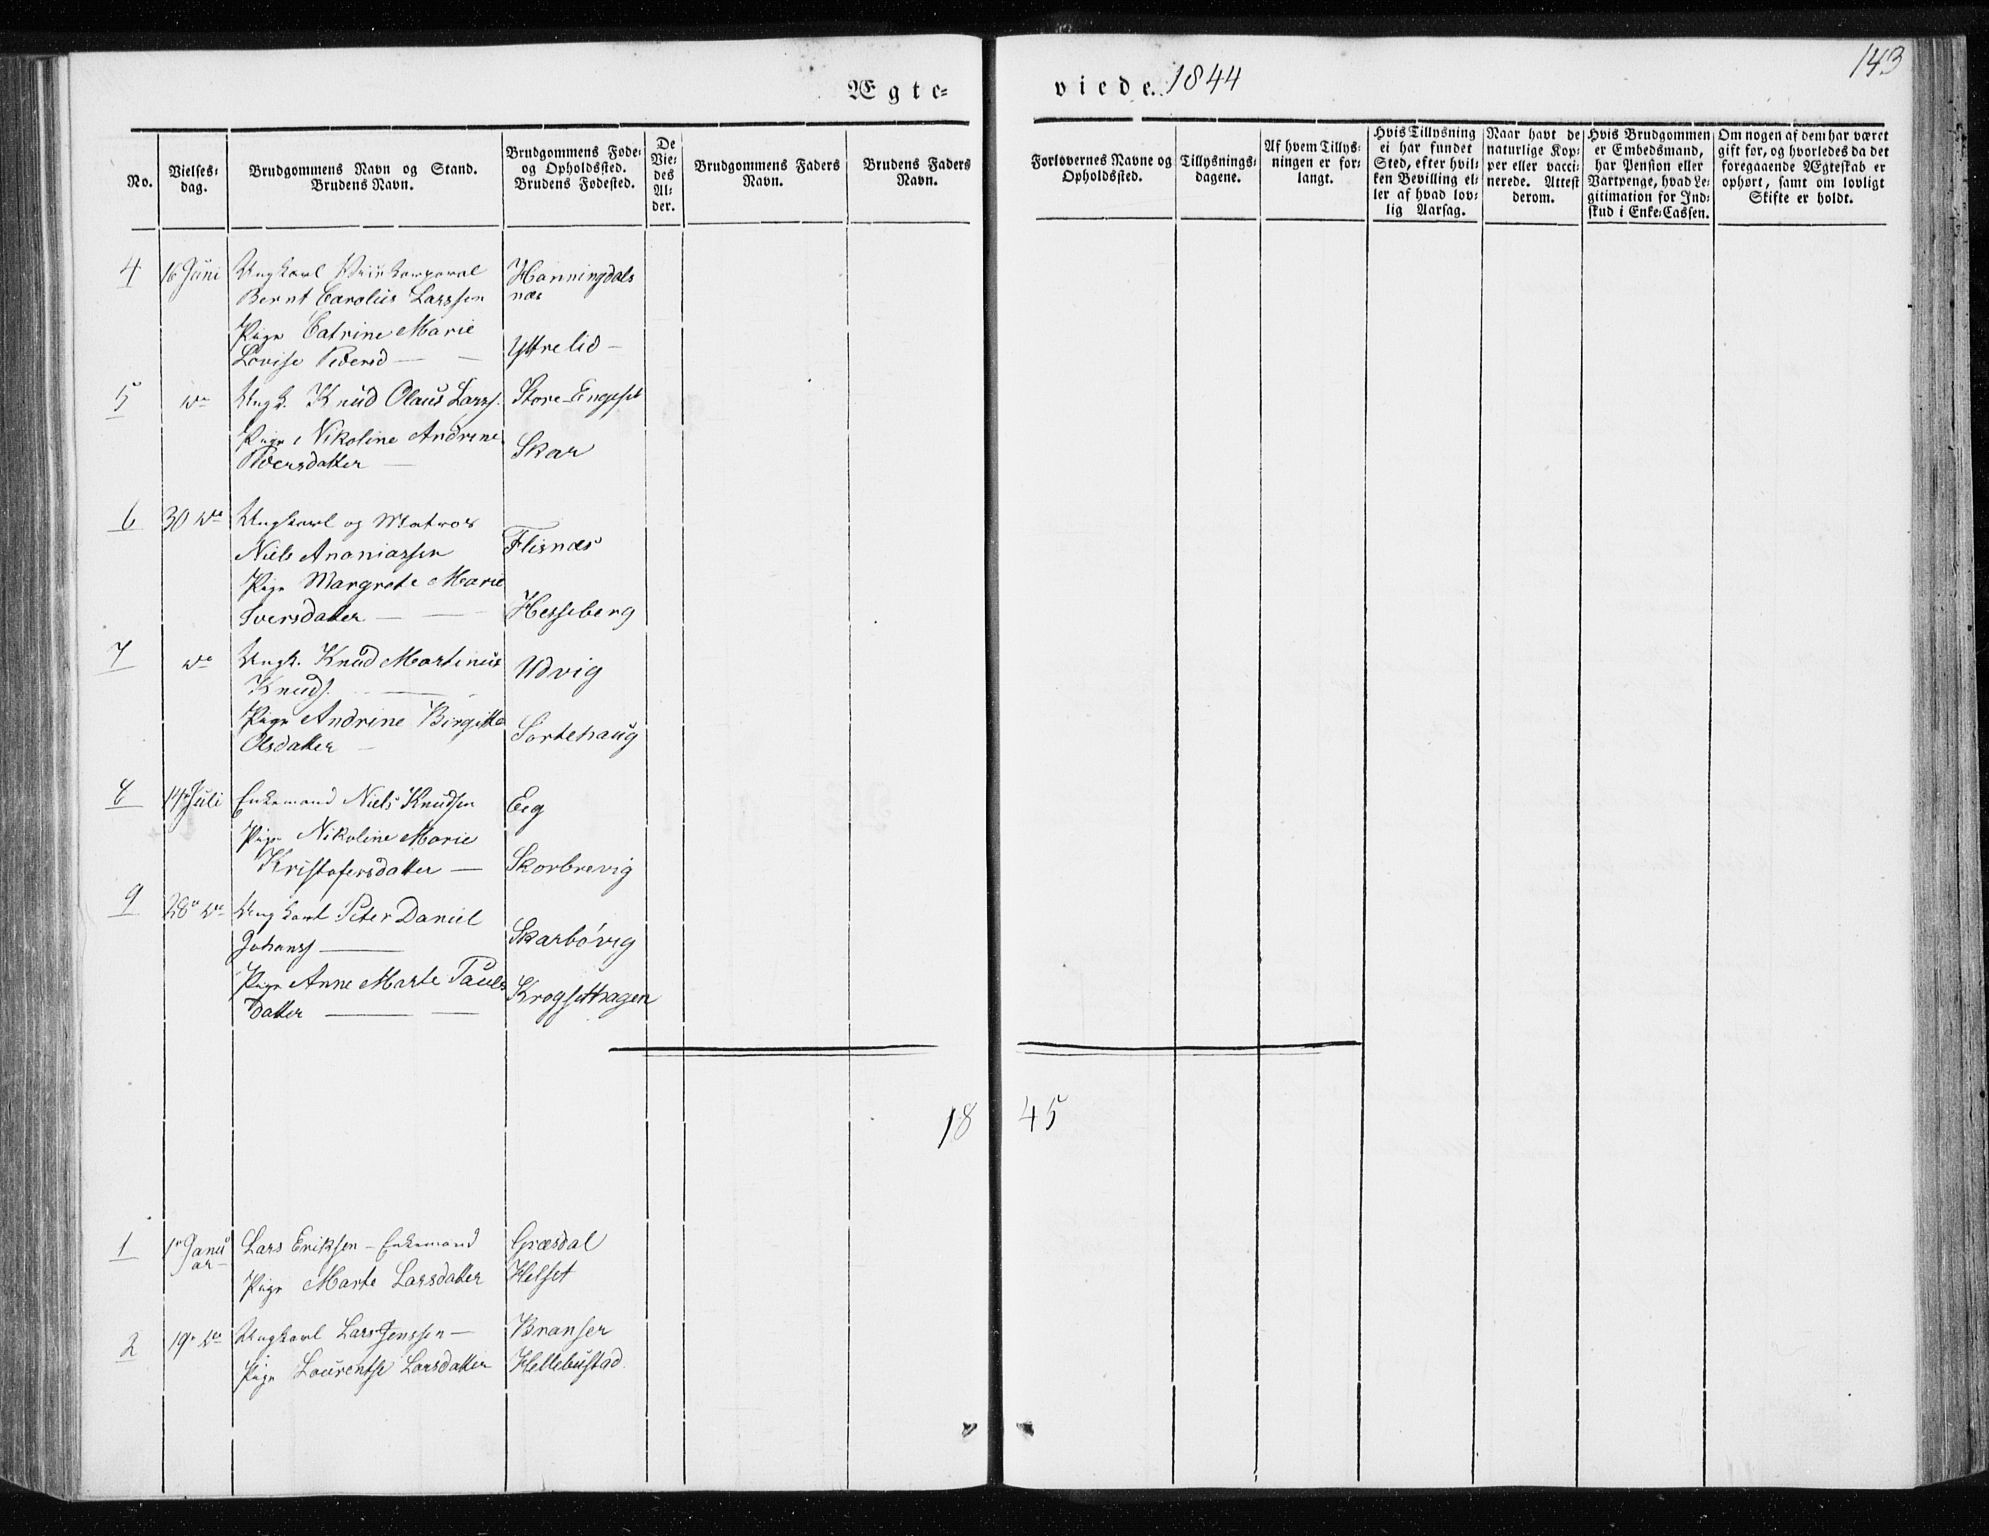 143
Ægte-
viede. 1844
No.
Vielses-
dag.
Brudgommens Navn og Stand.
Brudens Navn.
Brudgommens Føde-
og Opholdssted.
Brudens Fødested.
De
Vie-
des
Al-
der.
Brudgommens Faders
Navn.
Brudens Faders
Navn.
Forlovernes Navne og
Opholdssted.
Tillysnings-
dagene.
Af hvem Tillys-
ningen er for-
langt.
Hvis Tillysning
ei har fundet
Sted, efter hvil-
ken Bevilling el-
ler af hvad lov-
lig Aarsag.
Naar havt de
naturlige Kop-
per eller vacci-
nerede. Attest
derom.
Hvis Brudgommen
er Embedsmand,
har Pension eller
Vartpenge, hvad Le-
gitimation for Ind-
skud i Enke-Cassen.
Om nogen af dem har været
gift før, og hvorledes da det
foregaaende Ægteskab er
ophørt, samt om lovligt
Skifte er holdt.
4 16 Juni Ungkarl Korporal Honningdals
Bernt Carolus Larssen næs
Pige Catrine Marie
Lovise Pedersd — Yttrelid —
5 do Ungk. Knud Olaus Larss. Store-Engeset
Pige Nikoline Andrine
Iversdatter — Skar
6 30 do Ungkarl og Matros
Niels Ananiassen Flisnæs
Pige Margrete Marie
Iversdatter — Hesseberg
7 do Ungk. Knud Martinus Udvig
Knuds. —
Pige Andrine Birgitte Sortehaug
Olsdatter —
8 14 Juli Enkemand Niels Knudsen Eeg
Pige Nikoline Marie
Kristofersdatter — Skorbrevig
9 28 do Ungkarl Peter Daniel
Johans — Skarbövig
Pige Anne Marte Pauls
datter — Krogsethagen
1845
1 1 Janu Lars Eriksen — Enkemand Græsdal
ar — Pige Marte Larsdatter Helset
2 19 do Ungkarl Lars Jenssen — Branser
Pige Laurentse Larsdatter Hellebustad